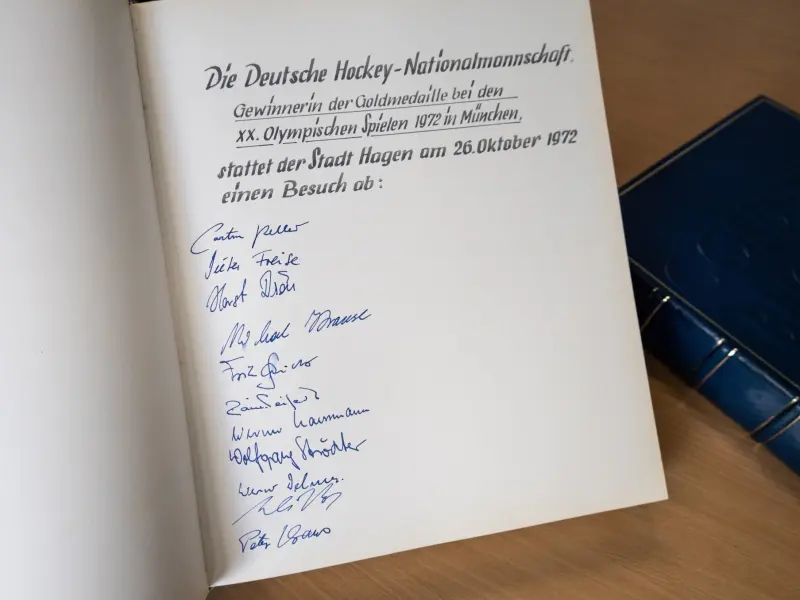 Die Deutsche Hockey-Nationalmannschaft,
Gewinnerin der Goldmedaille bei den
XX. Olympischen Spielen 1972 in München,
stattet der Stadt Hagen am 26. Oktober 1972
einen Besuch ab:
Carsten Keller
Dieter Freise
Horst Dröse
Michael Krause
Fritz Schmidt
Rainer Seifert
Werner Kaessmann
Wolfgang Strödter
Werner Delmes
Peter Kraus